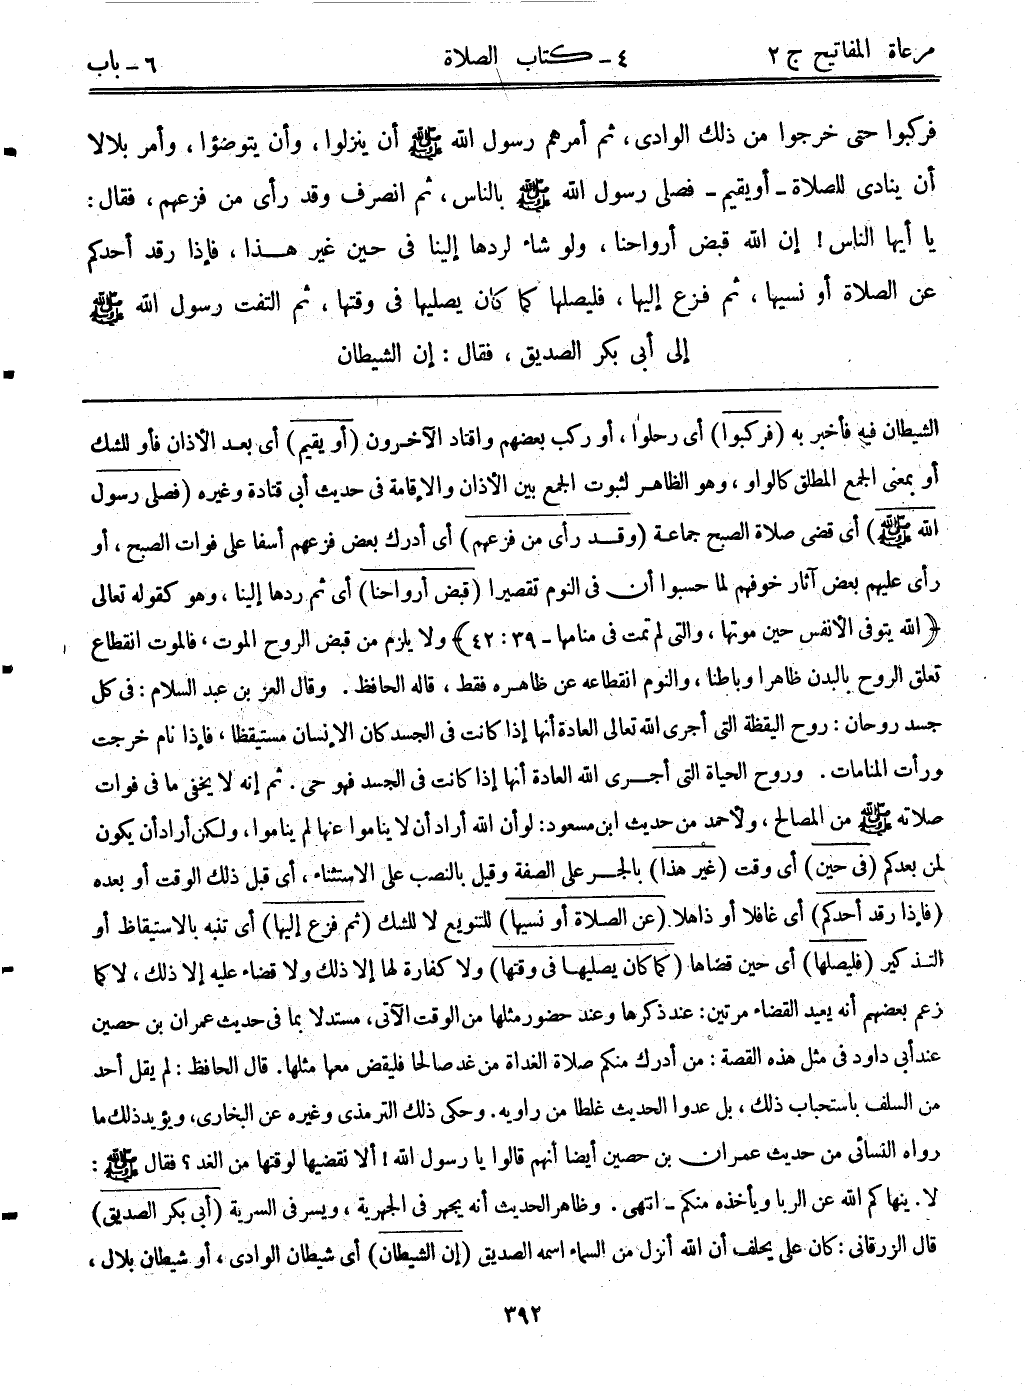 مرعاة المفاتيح ج ٢ ٤ - كتاب الصلاة ٦ - باب
فركبوا حتى خرجوا من ذلك الوادى، ثم أمرهم رسول الله ﷺ أن ينزلوا، وأن يتوضؤا، وأمر بلالا
أن ينادى للصلاة - أو يقيم - فصلى رسول الله ﷺ بالناس، ثم انصرف وقد رأى من فزعهم، فقال:
يا أيها الناس! إن الله قبض أرواحنا، ولو شاء لردها إلينا فى حين غير هذا، فإذا رقد أحدكم
عن الصلاة أو نسيها، ثم فزع إليها، فليصلها كما كان يصليها فى وقتها، ثم التفت رسول الله ﷺ
إلى أبى بكر الصديق، فقال: إن الشيطان
الشيطان فيه فأخبر به (فركبوا) أى رحلوا، أو ركب بعضهم واقتاد الآخرون (أو يقيم) أى بعد الأذان فأو للشك
أو بمعنى الجمع المطلق كالواو، وهو الظاهر لثبوت الجمع بين الأذان والإقامة فى حديث أبى قتادة وغيره (فصلى رسول
الله ﷺ) أى قضى صلاة الصبح جماعة (وقد رأى من فزعهم) أى أدرك بعض فزعهم أسفا على فوات الصبح، أو
رأى عليهم بعض آثار خوفهم لما حسبوا أن فى النوم تقصيرا (قبض أرواحنا) أى ثم ردها إلينا، وهو كقوله تعالى
﴿الله يتوفى الأنفس حين موتها، والتى لم تمت فى منامها - ٣٩: ٤٢﴾ ولا يلزم من قبض الروح الموت، فالموت انقطاع
تعلق الروح بالبدن ظاهرا وباطنا، والنوم انقطاعه عن ظاهره فقط، قاله الحافظ. وقال العز بن عبد السلام: فى كل
جسد روحان: روح اليقظة التى أجرى الله تعالى العادة أنها إذا كانت فى الجسد كان الإنسان مستيقظا، فإذا نام خرجت
ورأت المنامات. وروح الحياة التى أجرى الله العادة أنها إذا كانت فى الجسد فهو حى. ثم إنه لا يخفى ما فى فوات
صلاته ﷺ من المصالح، ولأحمد من حديث ابن مسعود: لو أن الله أراد أن لا يناموا عنها لم يناموا، ولكن أراد أن يكون
لمن بعدكم (فى حين) أى وقت (غير هذا) بالجر على الصفة وقيل بالنصب على الاستثناء، أى قبل ذلك الوقت أو بعده
(فإذا رقد أحدكم) أى غافلا أو ذاهلا (عن الصلاة أو نسيها) للتنويع لا للشك (ثم فزع إليها) أى تنبه بالاستيقاظ أو
التذكير (فليصلها) أى حين قضاها (كما كان يصليها فى وقتها) ولا كفارة لها إلا ذلك ولا قضاء عليه إلا ذلك، لا كما
زعم بعضهم أنه يعيد القضاء مرتين: عند ذكرها وعند حضور مثلها من الوقت الآتى، مستدلا بما فى حديث عمران بن حصين
عند أبى داود فى مثل هذه القصة: من أدرك منكم صلاة الغداة من غد صالحا فليقض معها مثلها. قال الحافظ: لم يقل أحد
من السلف باستحباب ذلك، بل عدوا الحديث غلطا من راويه. وحكى ذلك الترمذى وغيره عن البخارى، ويؤيد ذلك ما
رواه النسائى من حديث عمران بن حصين أيضا أنهم قالوا يا رسول الله! ألا نقضيها لوقتها من الغد؟ فقال ﷺ:
لا. ينهاكم الله عن الربا ويأخذه منكم - انتهى. وظاهر الحديث أنه يجهر فى الجهرية، ويسر فى السرية (أبى بكر الصديق)
قال الزرقانى: كان على يحلف أن الله أنزل من السماء اسمه الصديق (إن الشيطان) أى شيطان الوادى، أو شيطان بلال،
٣٩٢